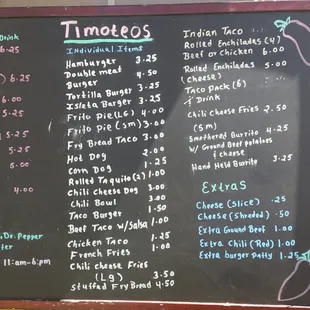 Timoteos
Drink
6.25
6.25
6.00
6.25
5.25
5.25
5.00
4.00
Dr. Pepper
11:am-6:pm
Individual Items
Hamburger 3.25
Double meat 4.50
Burger
Tortilla Burger 3.25
Isleta Burger 3.25
Frito Pie (LG) 4.00
Frito Pie (sm) 3.00
Fry Bread Taco 3.00
Hot Dog 2.00
Corn Dog 1.25
Rolled Taquito (2) 1.00
Chili Cheese Dog 3.00
Chili Bowl 3.00
Taco Burger 1.50
Beef Taco w/Salsa 1.00
Chicken Taco 1.25
French Fries 1.00
Chili cheese Fries
(Lg) 3.50
Stuffed Fry Bread 4.50
Indian Taco
Rolled Enchiladas (4)
Beef or Chicken 6.00
Rolled Enchiladas 5.00
(Cheese)
Taco Pack (6)
& Drink
Chili Cheese Fries 2.50
(Sm)
Smothered Burrito 4.25
w/ Ground Beef potatoes
& cheese
Hand Held Burrito 3.25
Extras
Cheese (Slice) .25
Cheese (Shreded) .50
Extra Ground Beef 1.00
Extra Chili (Red) 1.00
Extra burger patty 1.25